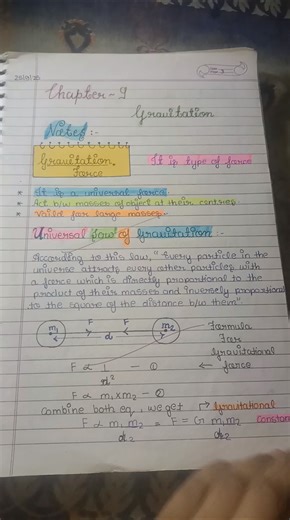 Chapter-9
Gravitation
Notes :-
Gravitation Force
It is type of force
* It is a universal force.
* Act b/w masses of object at their centres.
* Valid for large masses.
Universal Law of Gravitation :-
According to this law, "Every particle in the
universe attracts every other particles with
a force which is directly proportional to the
product of their masses and inversely proportional
to the square of the distance b/w them".
m1 F F m2
d
Formula
For
Gravitational
force
F ∝ 1/d² - ①
F ∝ m1 x m2 - ②
Combine both eq, we get
Gravitational
Constant
F ∝ m1 m2/d2 = F = G m1m2/d2